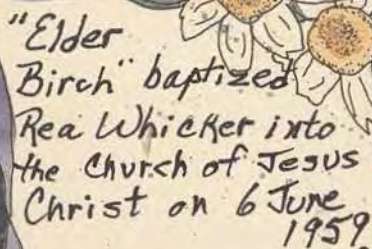 "Elder
Birch" baptized
Rea Whicker into
the Church of Jesus
Christ on 6 June
1959